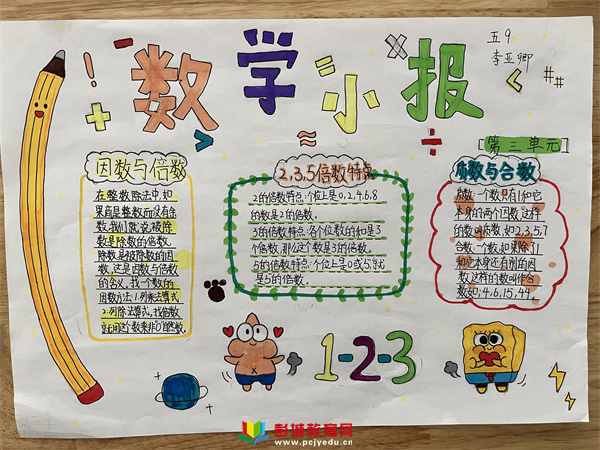 数学小报
五9
李亚卿
第三单元
因数与倍数
在整数除法中,如
果商是整数而没有余
数,我们就说被除
数是除数的倍数,
除数是被除数的因
数,这是因数与倍数
的含义,找一个数的
因数方法:1.列乘法算式
2.列除法算式,找倍数
就用这个数乘非0自然数。
2,3,5倍数特点
2的倍数特点:个位上是0,2,4,6,8
的数是2的倍数。
3的倍数特点:各个位数的和是3
个倍数,那么这个数是3的倍数。
5的倍数特点:个位上是0或5,就
是5的倍数。
质数与合数
质数:一个数只有1和它
本身的两个因数,这样
的数叫质数,如2,3,5,7
合数:一个数,如果除了1
和它本身还有别的因
数,这样的数叫作合
数如:4,6,15,44。
1-2-3
彭城教育网
www.pcjyedu.cn